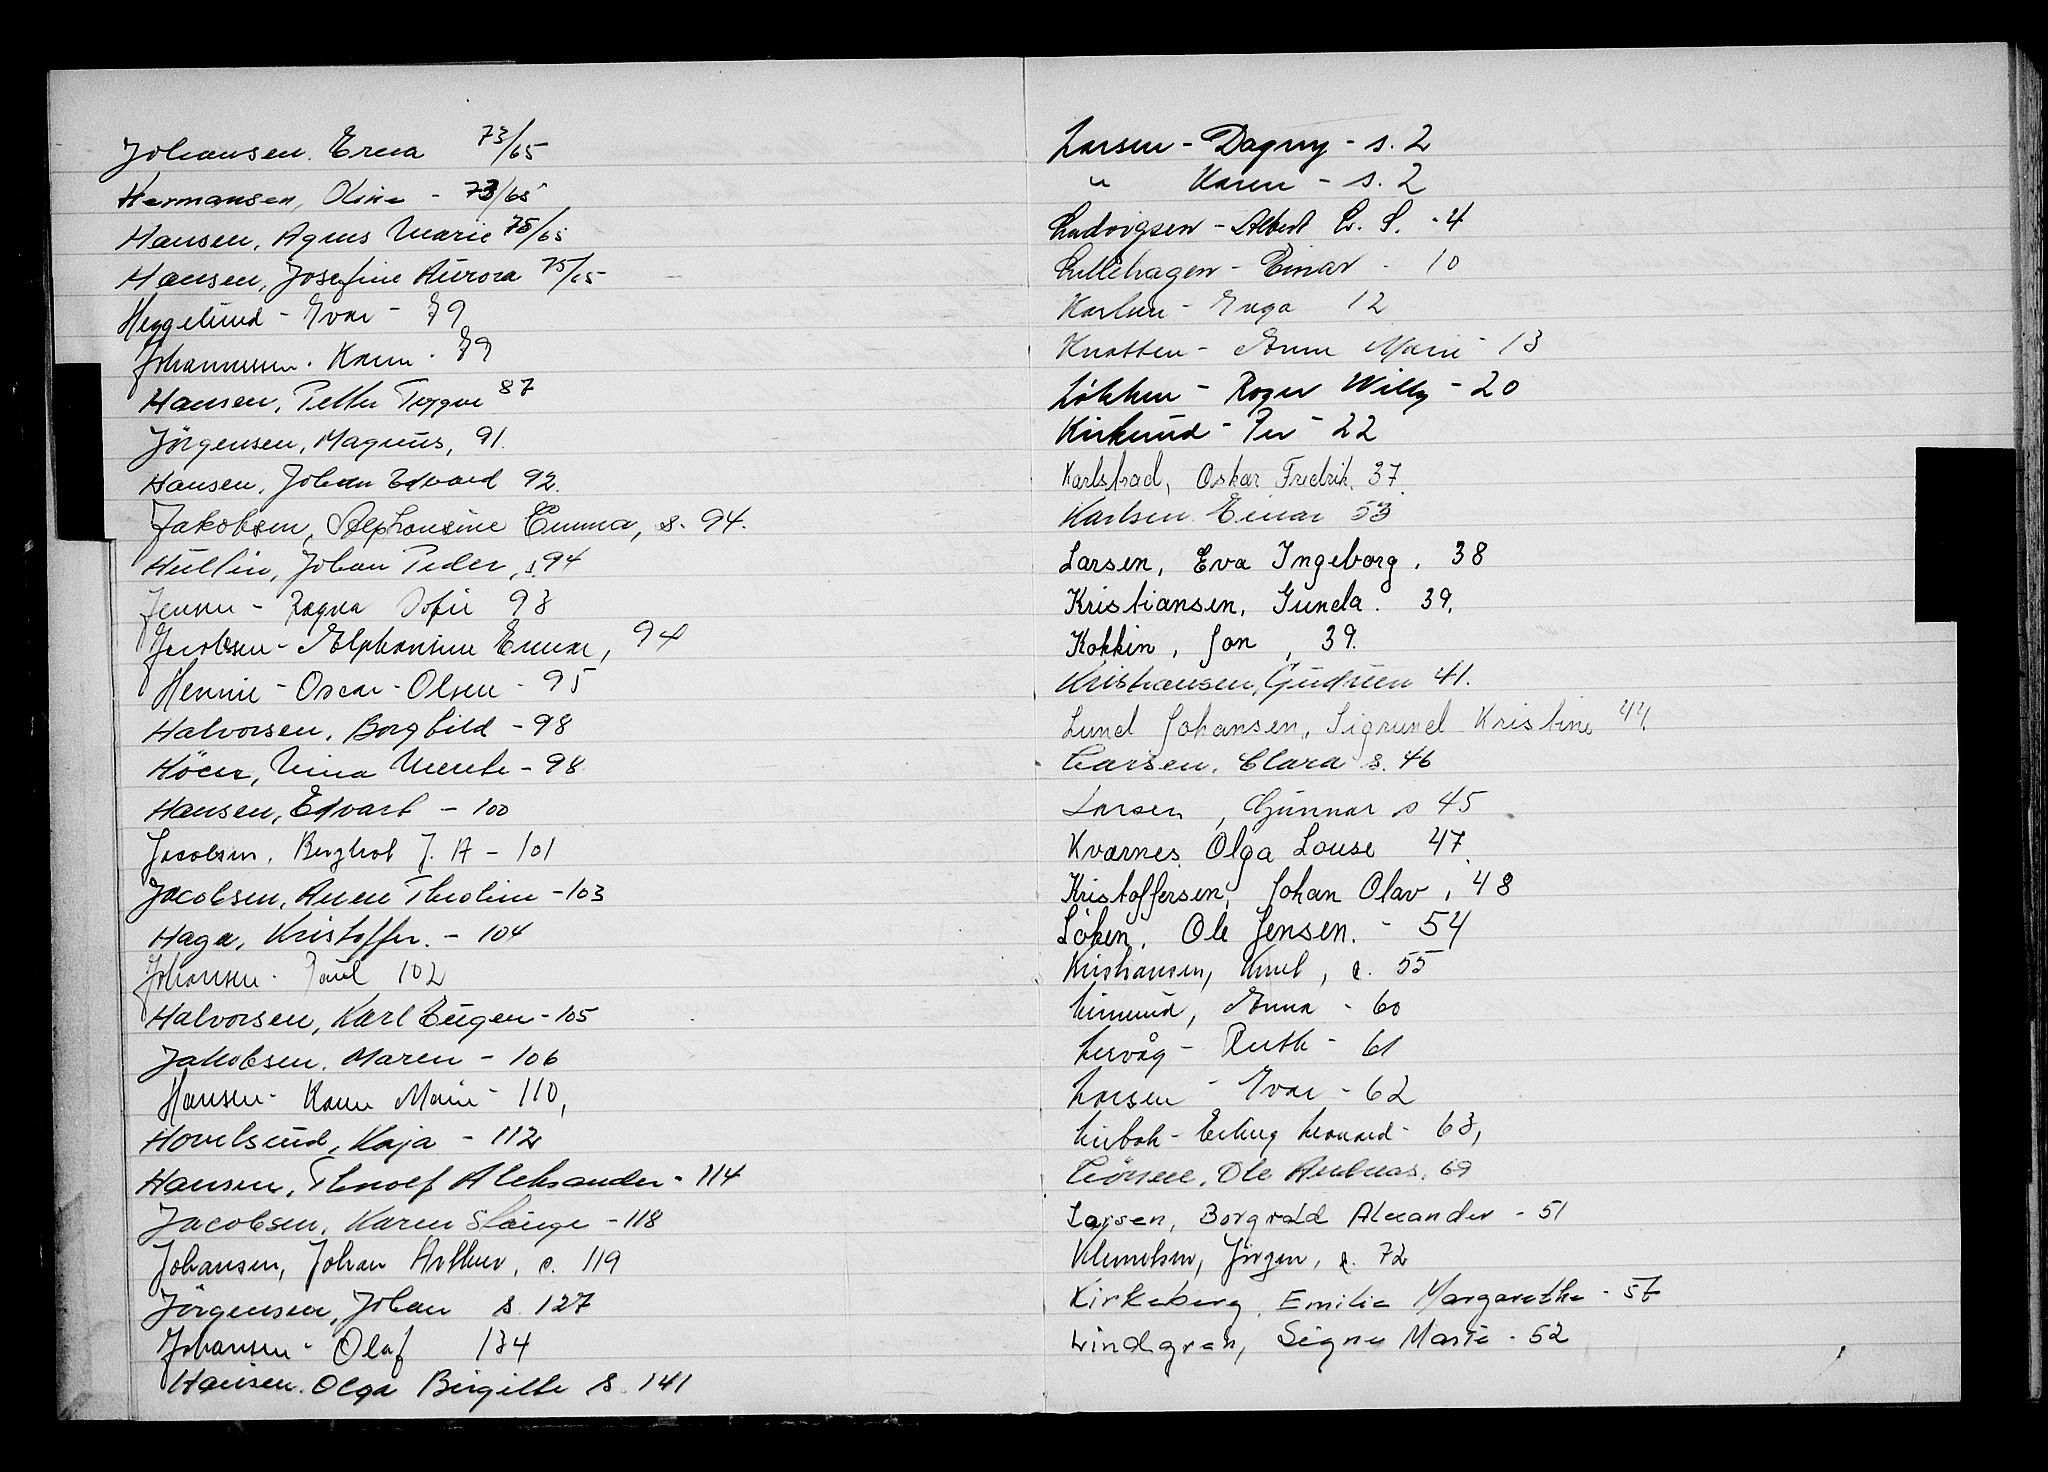 Johansen. Erna 73/65
Hermansen, Oline - 73/65
Hansen, Agnes Marie 75/65
Hansen, Josefine Aurora 75/65
Heggelund - Ivar - 79
Johannessen. Karen. 79
Hansen, Petter Trygve 87
Jörgensen, Magnus, 91.
Hansen, Johan Edvard 92.
Jakobsen, Alphonsine Emma, s. 94.
Hullin, Johan Peder, s. 94
Jensen - Ragna Sofie 93
Jacobsen - Alphonsine Emma, 94
Hennie - Oscar - Olsen - 95
Halvorsen, Borghild - 98
Höcer, Nina Merete - 98
Hansen, Edvart - 100
Jacobsen, J. A - 101
Jacobsen, Anne Theoline - 103
Haga, Kristoffer. - 104
Johansen - Paul 102
Halvorsen, Karl Eugen - 105
Jakobsen, Maren - 106
Hansen - Karen Marie - 110,
Hovelsrud, Kaja - 112
Hansen, Thoralf Aleksander - 114
Jacobsen, Karen Stange - 118
Johansen, Johan Arthur, s. 119
Jörgensen, Johan s. 127
Johansen - Olaf 134
Hansen. Olga Birgitte s. 141
Larsen - Dagny - s. 2
" Karen - s. 2
Ludvigsen - Albert L. S. - 4
Lillehagen - Einar - 10
Karlsen - Inga 12
Knatten - Anne Marie - 13
Løkken - Roger Willy - 20
Kirkerud - Per - 22
Karlstad, Oskar Fredrik. 37.
Karlsen Einar 53
Larsen, Eva Ingeborg. 38
Kristiansen, Gunda. 39.
Kokkin, Jon, 39.
Kristiansen, Gudrun 41.
Lund Johansen, Sigrund Kristine 44.
Larsen, Clara s. 46
Larsen, Gunnar s 45
Kvarnes, Olga Louse 47.
Kristoffersen, Johan Olav, 48
Löken, Ole Jensen. - 54
Kristiansen, Knut, s. 55
Linnerud, Anna - 60
Lervåg - Ruth - 61
Larsen - Ivar - 62
Lirbak - Erling Leonard - 63,
Ole Andreas. 69
Larsen, Borgvald Alexander - 51
Klemetsen, Jörgen, s. 72
Kirkeberg, Emilie Margarethe - 57
Lindgren, Signe Marie - 52